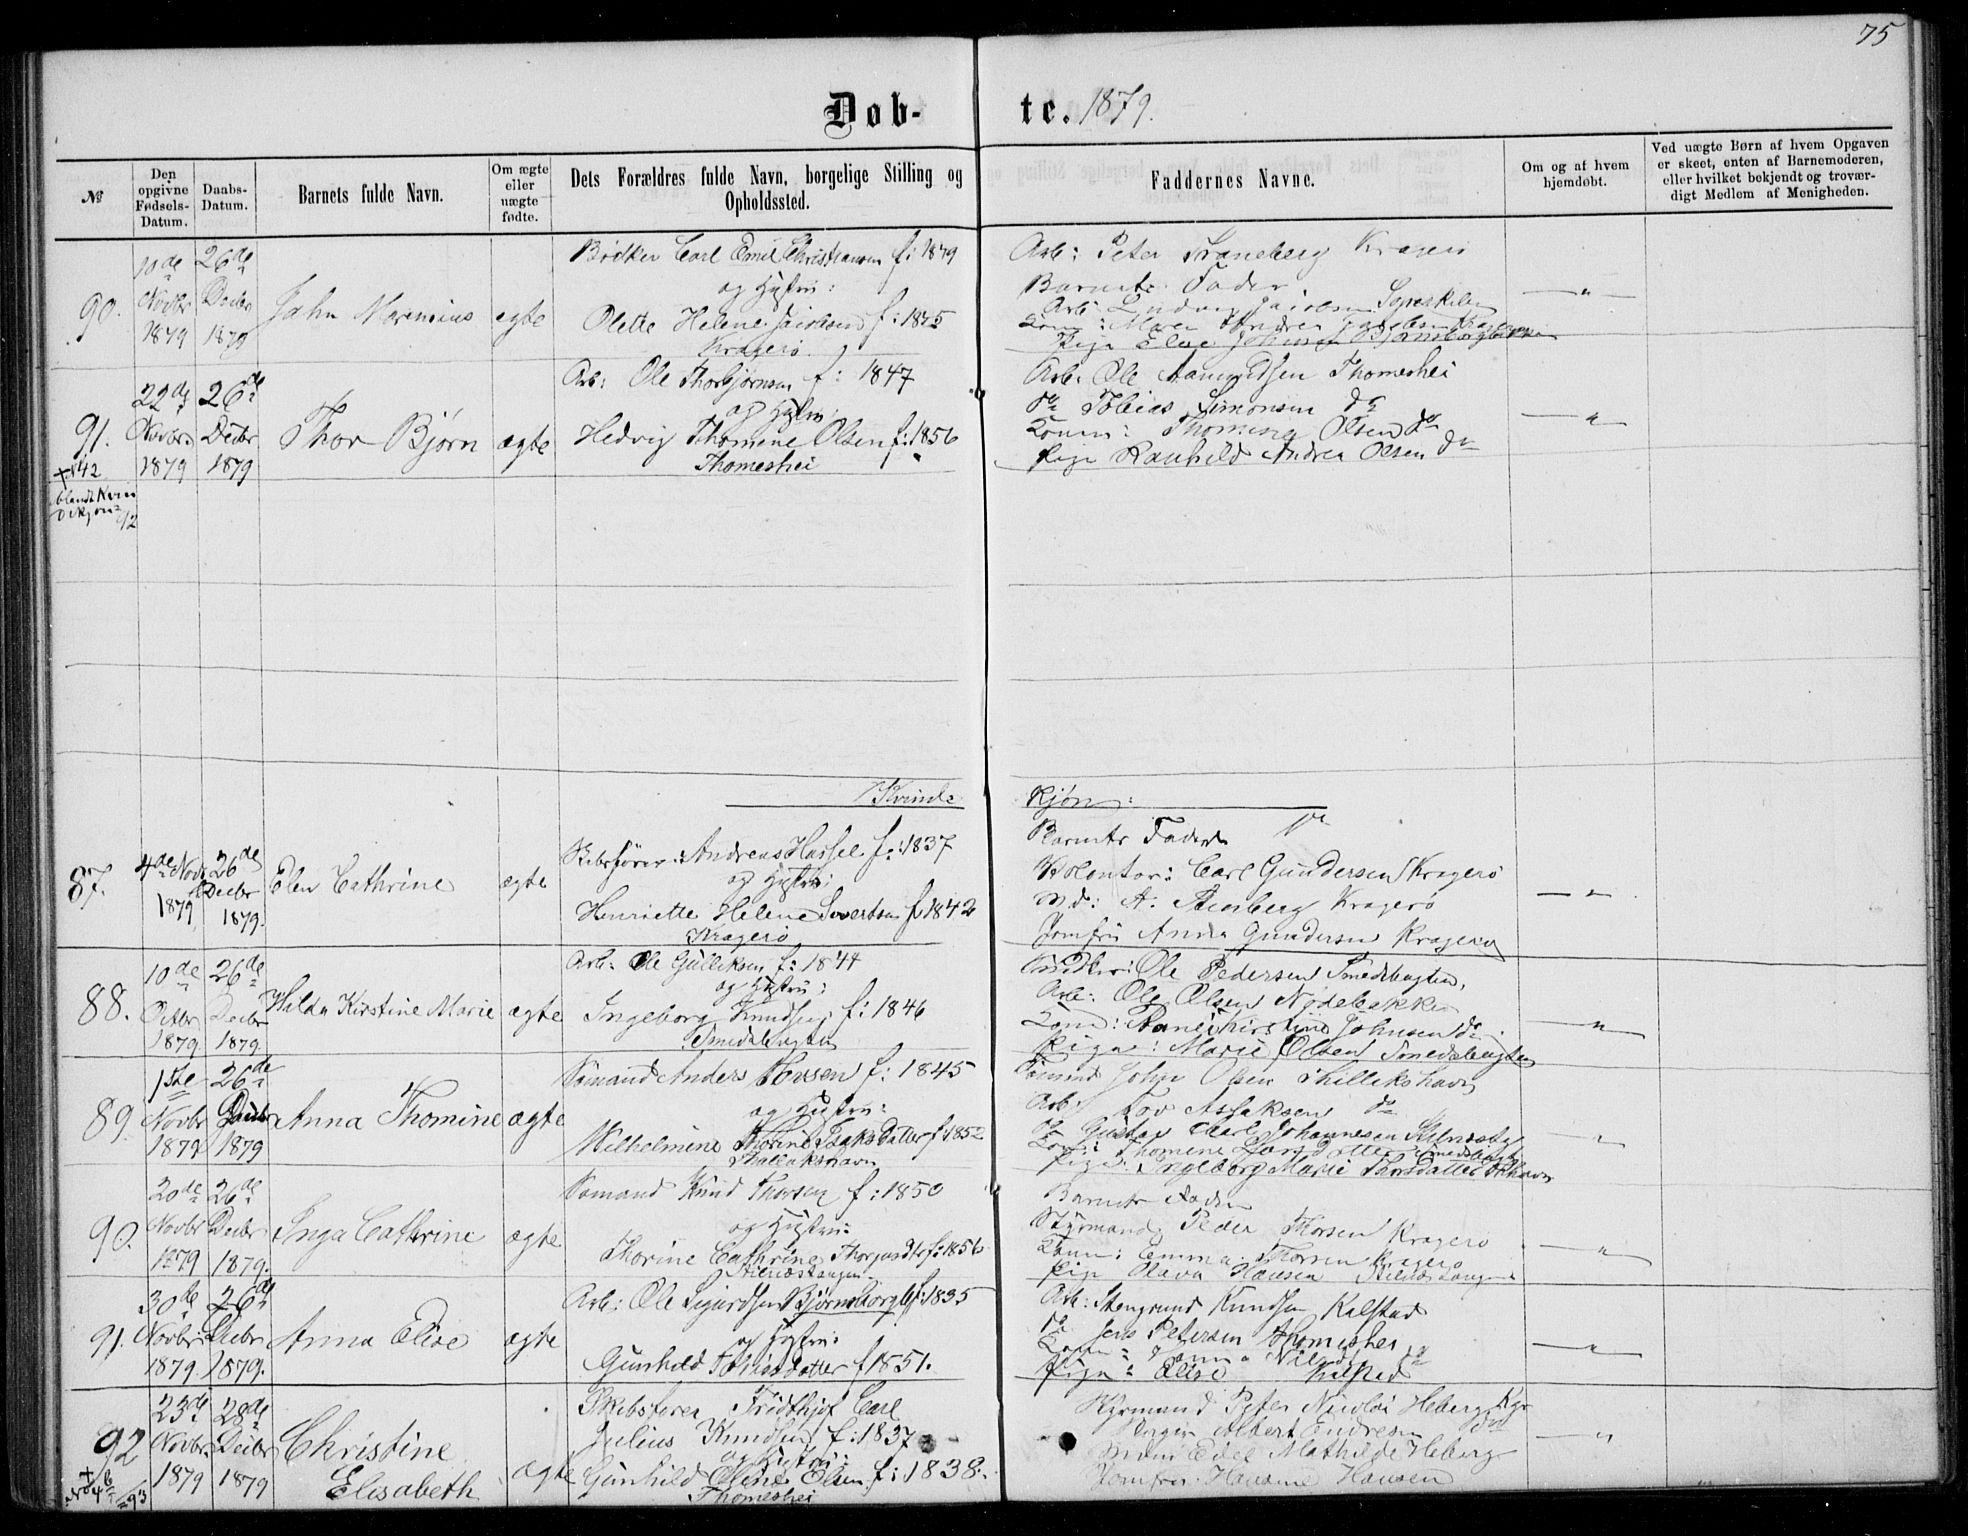 75
Døb-te. 1879.
№
Den opgivne Fødsels-Datum.
Daabs-Datum.
Barnets fulde Navn.
Om ægte eller uægte fødte.
Dets Forældres fulde Navn, borgelige Stilling og Opholdssted.
Faddernes Navne.
Om og af hvem hjemdøbt.
Ved uægte Børn af hvem Opgaven er skeet, enten af Barnemoderen, eller hvilket bekjendt og troværdigt Medlem af Menigheden.
90.
10de Novbr 1879
26de Decbr 1879
John Marensius
ægte
Bødker Carl Emil Christiansen f: 1849
og Hustru:
Olette Helene Jacobsen f: 1845
Kragerø
Arb: Peter Traneberg Kragerø
Barnets Fader
Arb: Jacobsen
Kone: Maren Andrea Jacobsen
Pige Johnsen
— " —
91.
22de Novbr 1879
26de Decbr 1879
Thor Bjørn
ægte
Arb: Ole Thorbjørnsen f: 1847
og Hustru:
Hedvig Thomine Olsen f: 1856
Thomeshei
Arb: Ole Aamundsen Thomeshei
do Tobias Simonsen do
Kone: Thomine Olsen do
Pige Ranhild Andrea Olsen do
— " —
+ 142
blandt Kvin
92
Kvinde-
Kjøn:
87.
4de Novbr 1879
26de Decbr 1879.
Elen Cathrine
ægte
Skibsfører: Andreas Hassel f: 1837
og Hustru:
Henriette Helene Sivertsen f 1842
Kragerø
Barnets Fader
Volontør: Carl Gundersen Kragerø
Md: A. Kragerø
Jomfru Anna Gundersen Kragerø
— " —
88.
10de Octbr 1879
26de Decbr 1879.
Hilda Kirstine Marie
ægte
Arb: Ole Gulliksen f: 1844
og Hustru:
Ingeborg Knudsen f: 1846
Smedsbugten
Ole Pedersen Smedsbugten,
Arb: Ole Olsen Nødebakken
Kone: Kirstine Johnsen do
Pige: Marie Olsen Smedsbugten
— " —
89
1ste Novbr 1879
26de Decbr 1879
Anna Thomine
ægte
Sømand Anders Tovsen f: 1845
og Hustru:
Wilhelmine Thorine Isaksdatter f: 1852
Sømand John Olsen
Arb: Tov Assaksen do
do Gustav Carl Johannesen
Kone: Thomine Larsdatter Smedsbugt
Pige: Ingeborg Marie
— " —
90.
20de Novbr 1879
26de Decbr 1879.
Inga Cathrine
ægte
Sømand Knud Thorsen f: 1850
og Hustru:
Thorine Cathrine f: 1856
Barnets Fader
Styrmand Peder Thorsen Kragerø
Kone: Emma Thorsen Kragerø
Pige Olava Hansen
— " —
91.
30de Novbr 1879
26de Decbr 1879.
Anna Elise
ægte
Arb: Ole Sigurdsen f 1835
og Hustru:
Gunhild Tobiasdatter f 1851.
Arb: Stengrund Knudsen Kalstad
do Jens Petersen Thomeshei
Kone: do
Pige: Elise Kalstad
— " —
92
23de Novbr 1879
28de Decbr 1879
Christine
Elisabeth
ægte
Skibsfører Fridthjof Carl
Julius Knudsen f: 1837
og Hustru:
Gunhild Oline Olsen f: 1838.
Thomeshei
Styrmand Peter Nicolai Heberg
Albert Endresen
Edel Mathilde Heberg
Jomfru Hansine Hansen
— " —